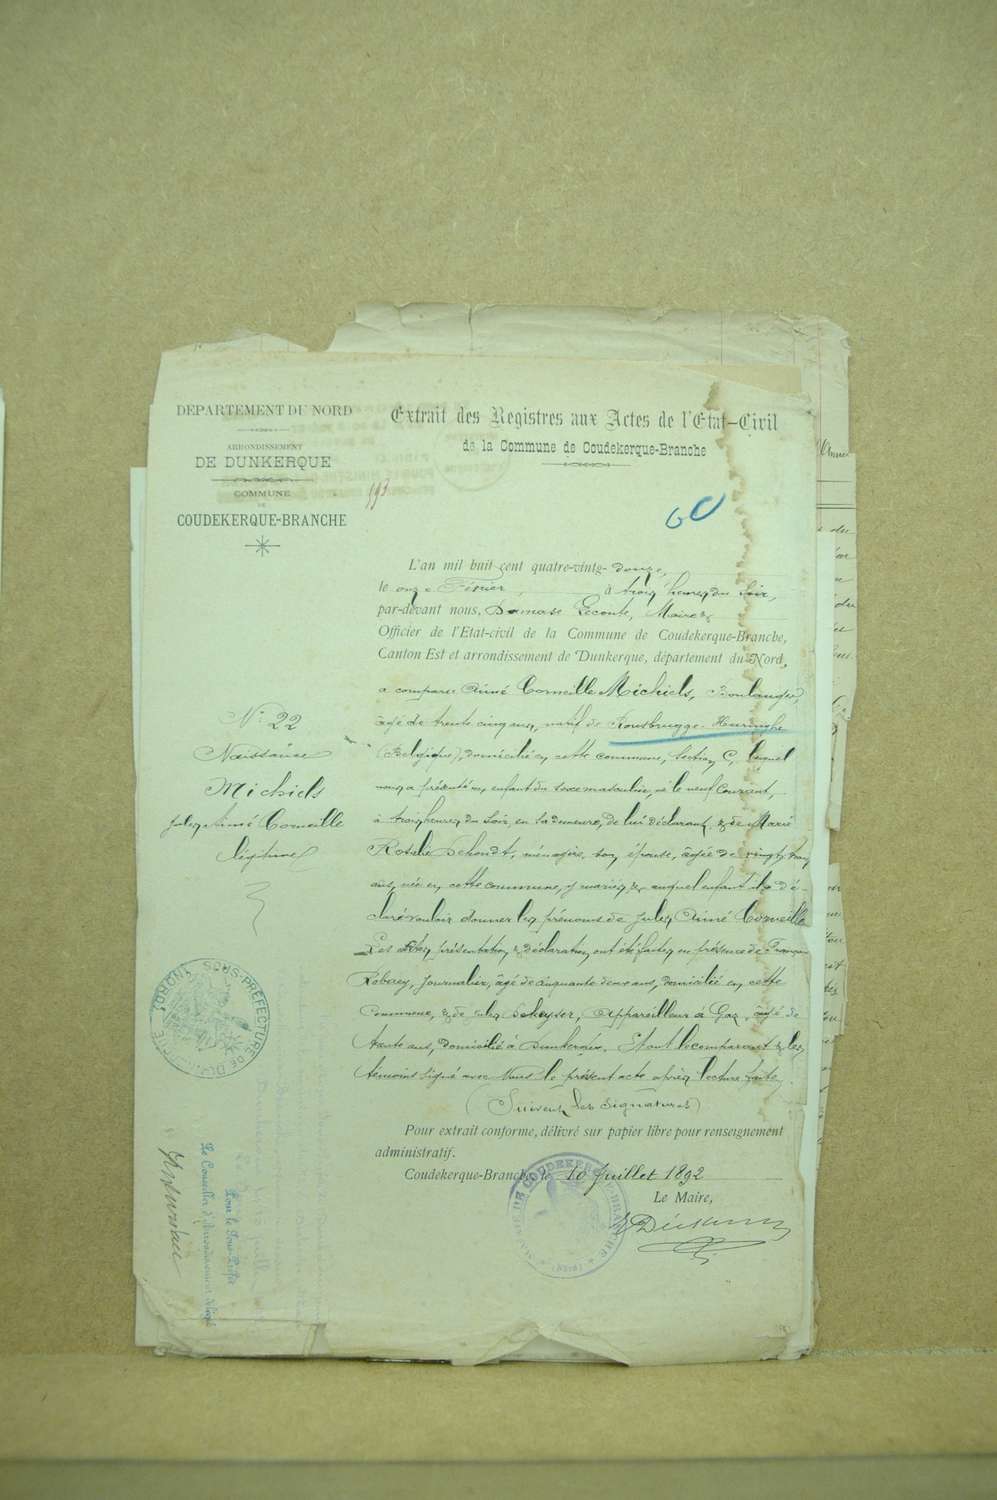 DEPARTEMENT DU NORD
ARRONDISSEMENT
DE DUNKERQUE
COMMUNE
DE
COUDEKERQUE-BRANCHE
Extrait des Registres aux Actes de l'Etat-Civil
de la Commune de Coudekerque-Branche
193
60
L'an mil huit cent quatre-vingt- douze,
le onze Février, à trois heures du soir,
par-devant nous, Damase Leconte, Maire &
Officier de l'Etat-civil de la Commune de Coudekerque-Branche,
Canton Est et arrondissement de Dunkerque, département du Nord,
a comparu Aimé Corneille Michiels, Boulanger,
âgé de trente cinq ans, natif de Rousbrugge-Haringhe
(Belgique), domicilié en cette commune, section C, lequel
nous a présenté un enfant du sexe masculin, né le neuf courant,
à trois heures du soir, en sa demeure, de lui déclarant & de Marie
Rosalie Dehondt, ménagère, son épouse, âgée de vingt trois
ans, née en cette commune, y mariés, & auquel enfant il a dé-
claré vouloir donner les prénoms de Jules Aimé Corneille
Les dites présentation & déclaration ont été faites en présence de François
Robaey, Journalier, âgé de cinquante deux ans, domicilié en cette
commune, & de Jules Dekeyser, Appareilleur à Gaz, âgé de
trente ans, domicilié à Dunkerque. Et ont le comparant & les
témoins signé avec Nous le présent acte après lecture faite.
(Suivent les signatures)
Pour extrait conforme, délivré sur papier libre pour renseignement
administratif.
Coudekerque-Branche, le 10 Juillet 1892
Le Maire,
N° 22
Naissance
Michiels
Jules Aimé Corneille
légitime
SOUS-PRÉFECTURE DE DUNKERQUE (NORD)
MAIRIE DE COUDEKERQUE-BRANCHE (NORD)
Pour le Sous-Préfet
Le Conseiller d'Arrondissement délégué